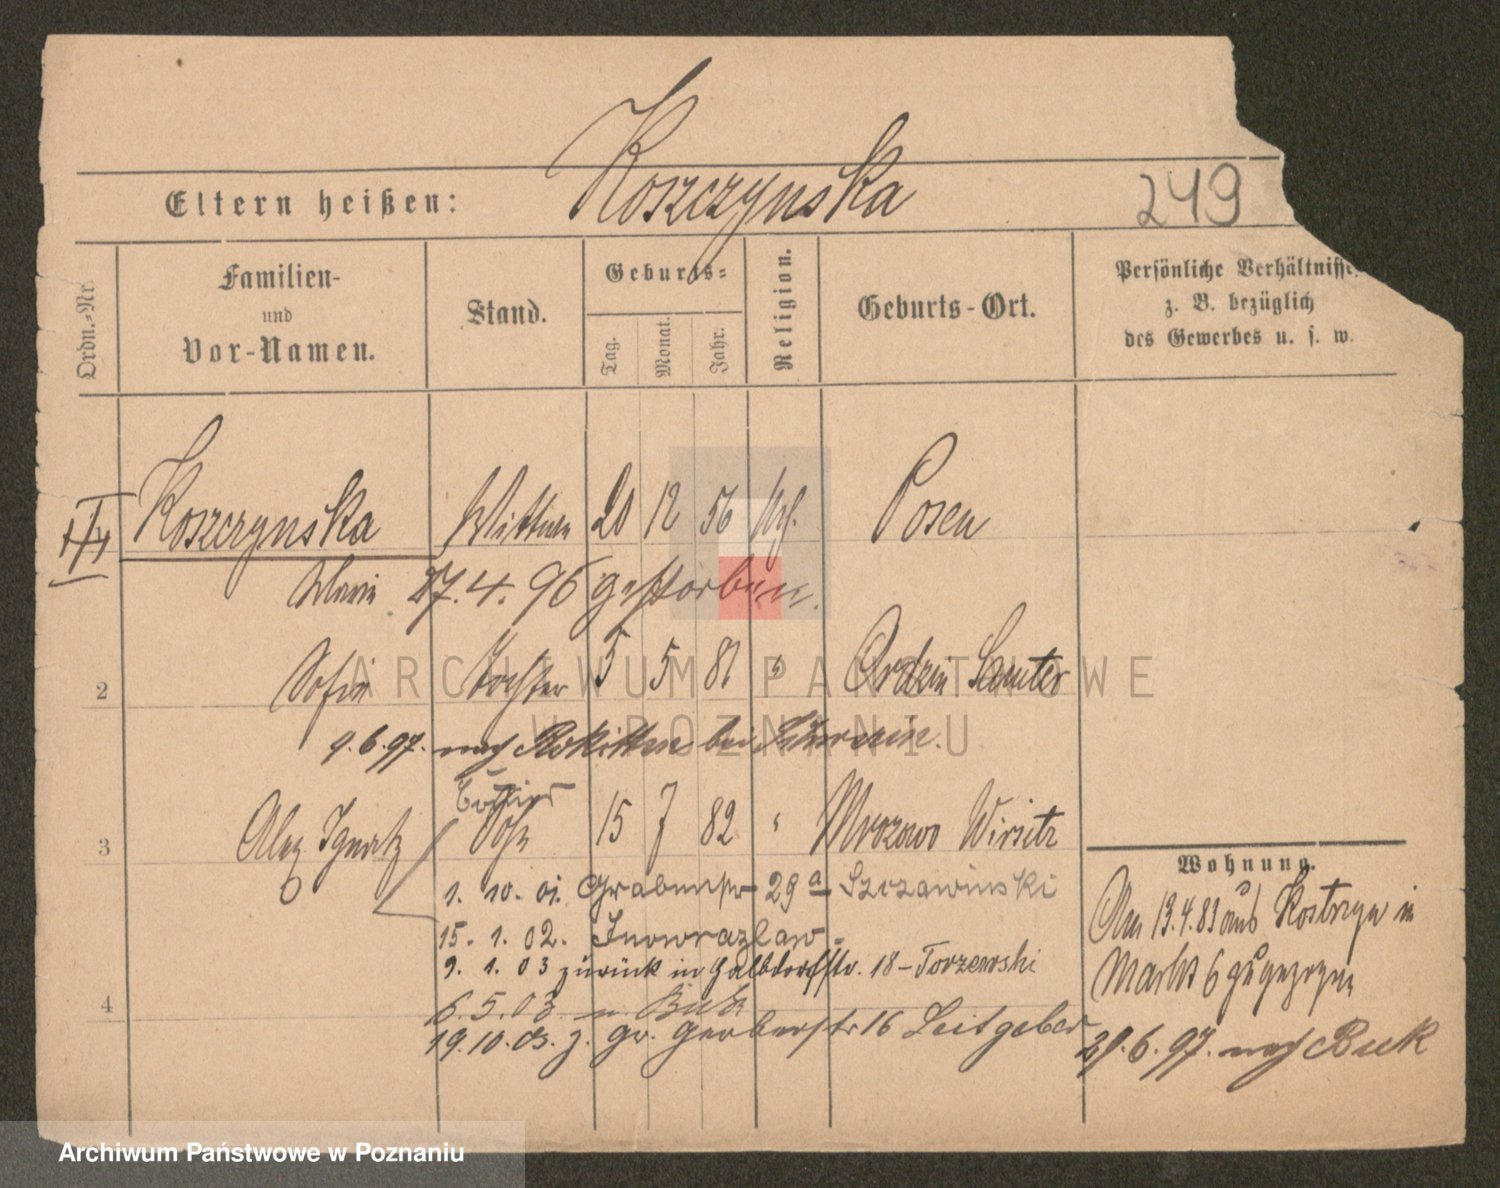 Koszczynska
249
Eltern heißen:
Ordn.-Nr.
Familien-
und
Vor-Namen.
Stand.
Geburts-
Tag.
Monat.
Jahr.
Religion.
Geburts-Ort.
Persönliche Verhältnisse
z. B. bezüglich
des Gewerbes u. s. w.
Koszczynska Wittwe 20 12 56 Posen
Marie 27.4.96 gestorben.
2 Sofia Tochter 5 5 81 " Samter
9.6.97. nach bei
3 Alex Ignatz Sohn 15 7 82 " Mrozowo Wirsitz
1. 10. 01. 29a Szczawinski
15. 1. 02. Inowrazlaw
9. 1. 03 zurück in Halbdorfstr. 18 – Torzewski
4
6. 5. 03 n. Buk
19. 10. 03. z. gr. Gerberstr 16 Leitgeber
Wohnung.
Am 13.4.83 aus Kostrzyn in
Markt 6 zugezogen
29.6.97. nach Buk
ARCHIWUM PAŃSTWOWE
W POZNANIU
Archiwum Państwowe w Poznaniu